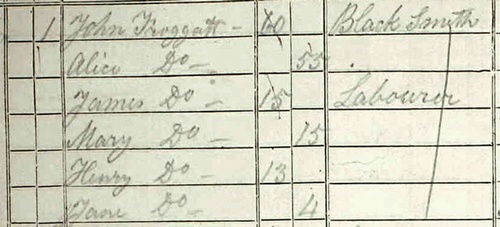 1 John Froggatt - 60 Black Smith
Alice Do - 55
James Do - 15 Labourer
Mary Do - 15
Henry Do - 13
Jane Do - 4